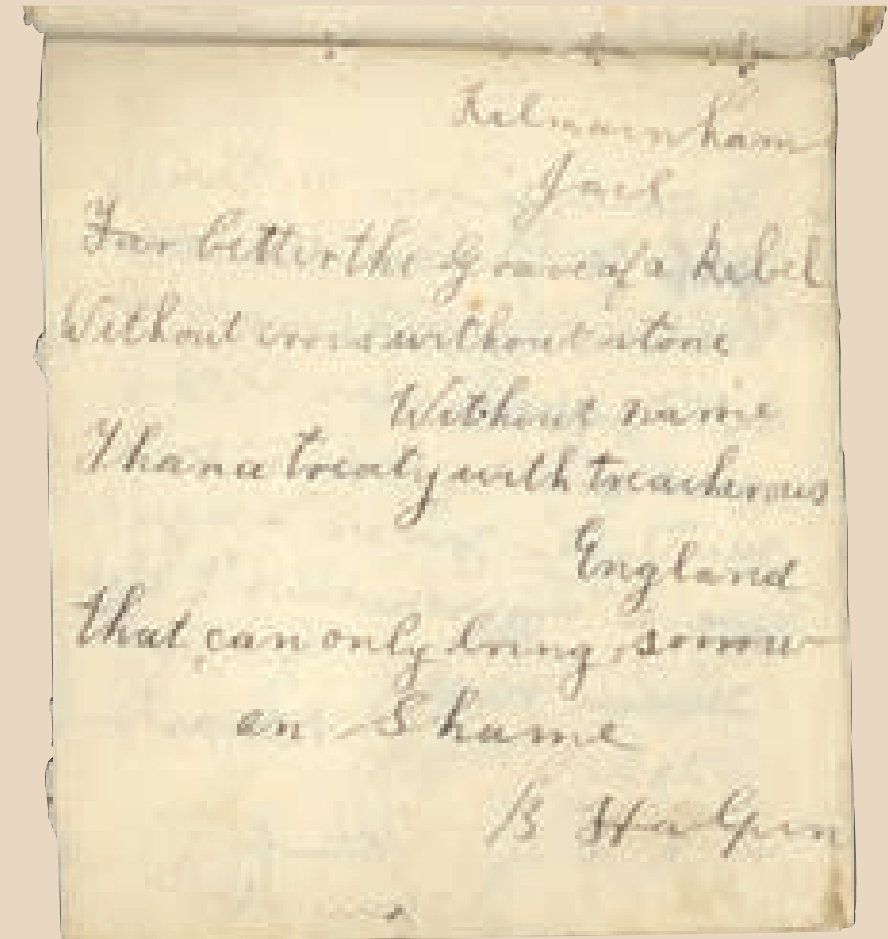 Kilmainham
Jail
Far better the Grave of a Rebel
Without cross without stone
Without name
Than a treaty with treacherous
England
that can only bring sorrow
an Shame
B Halpin